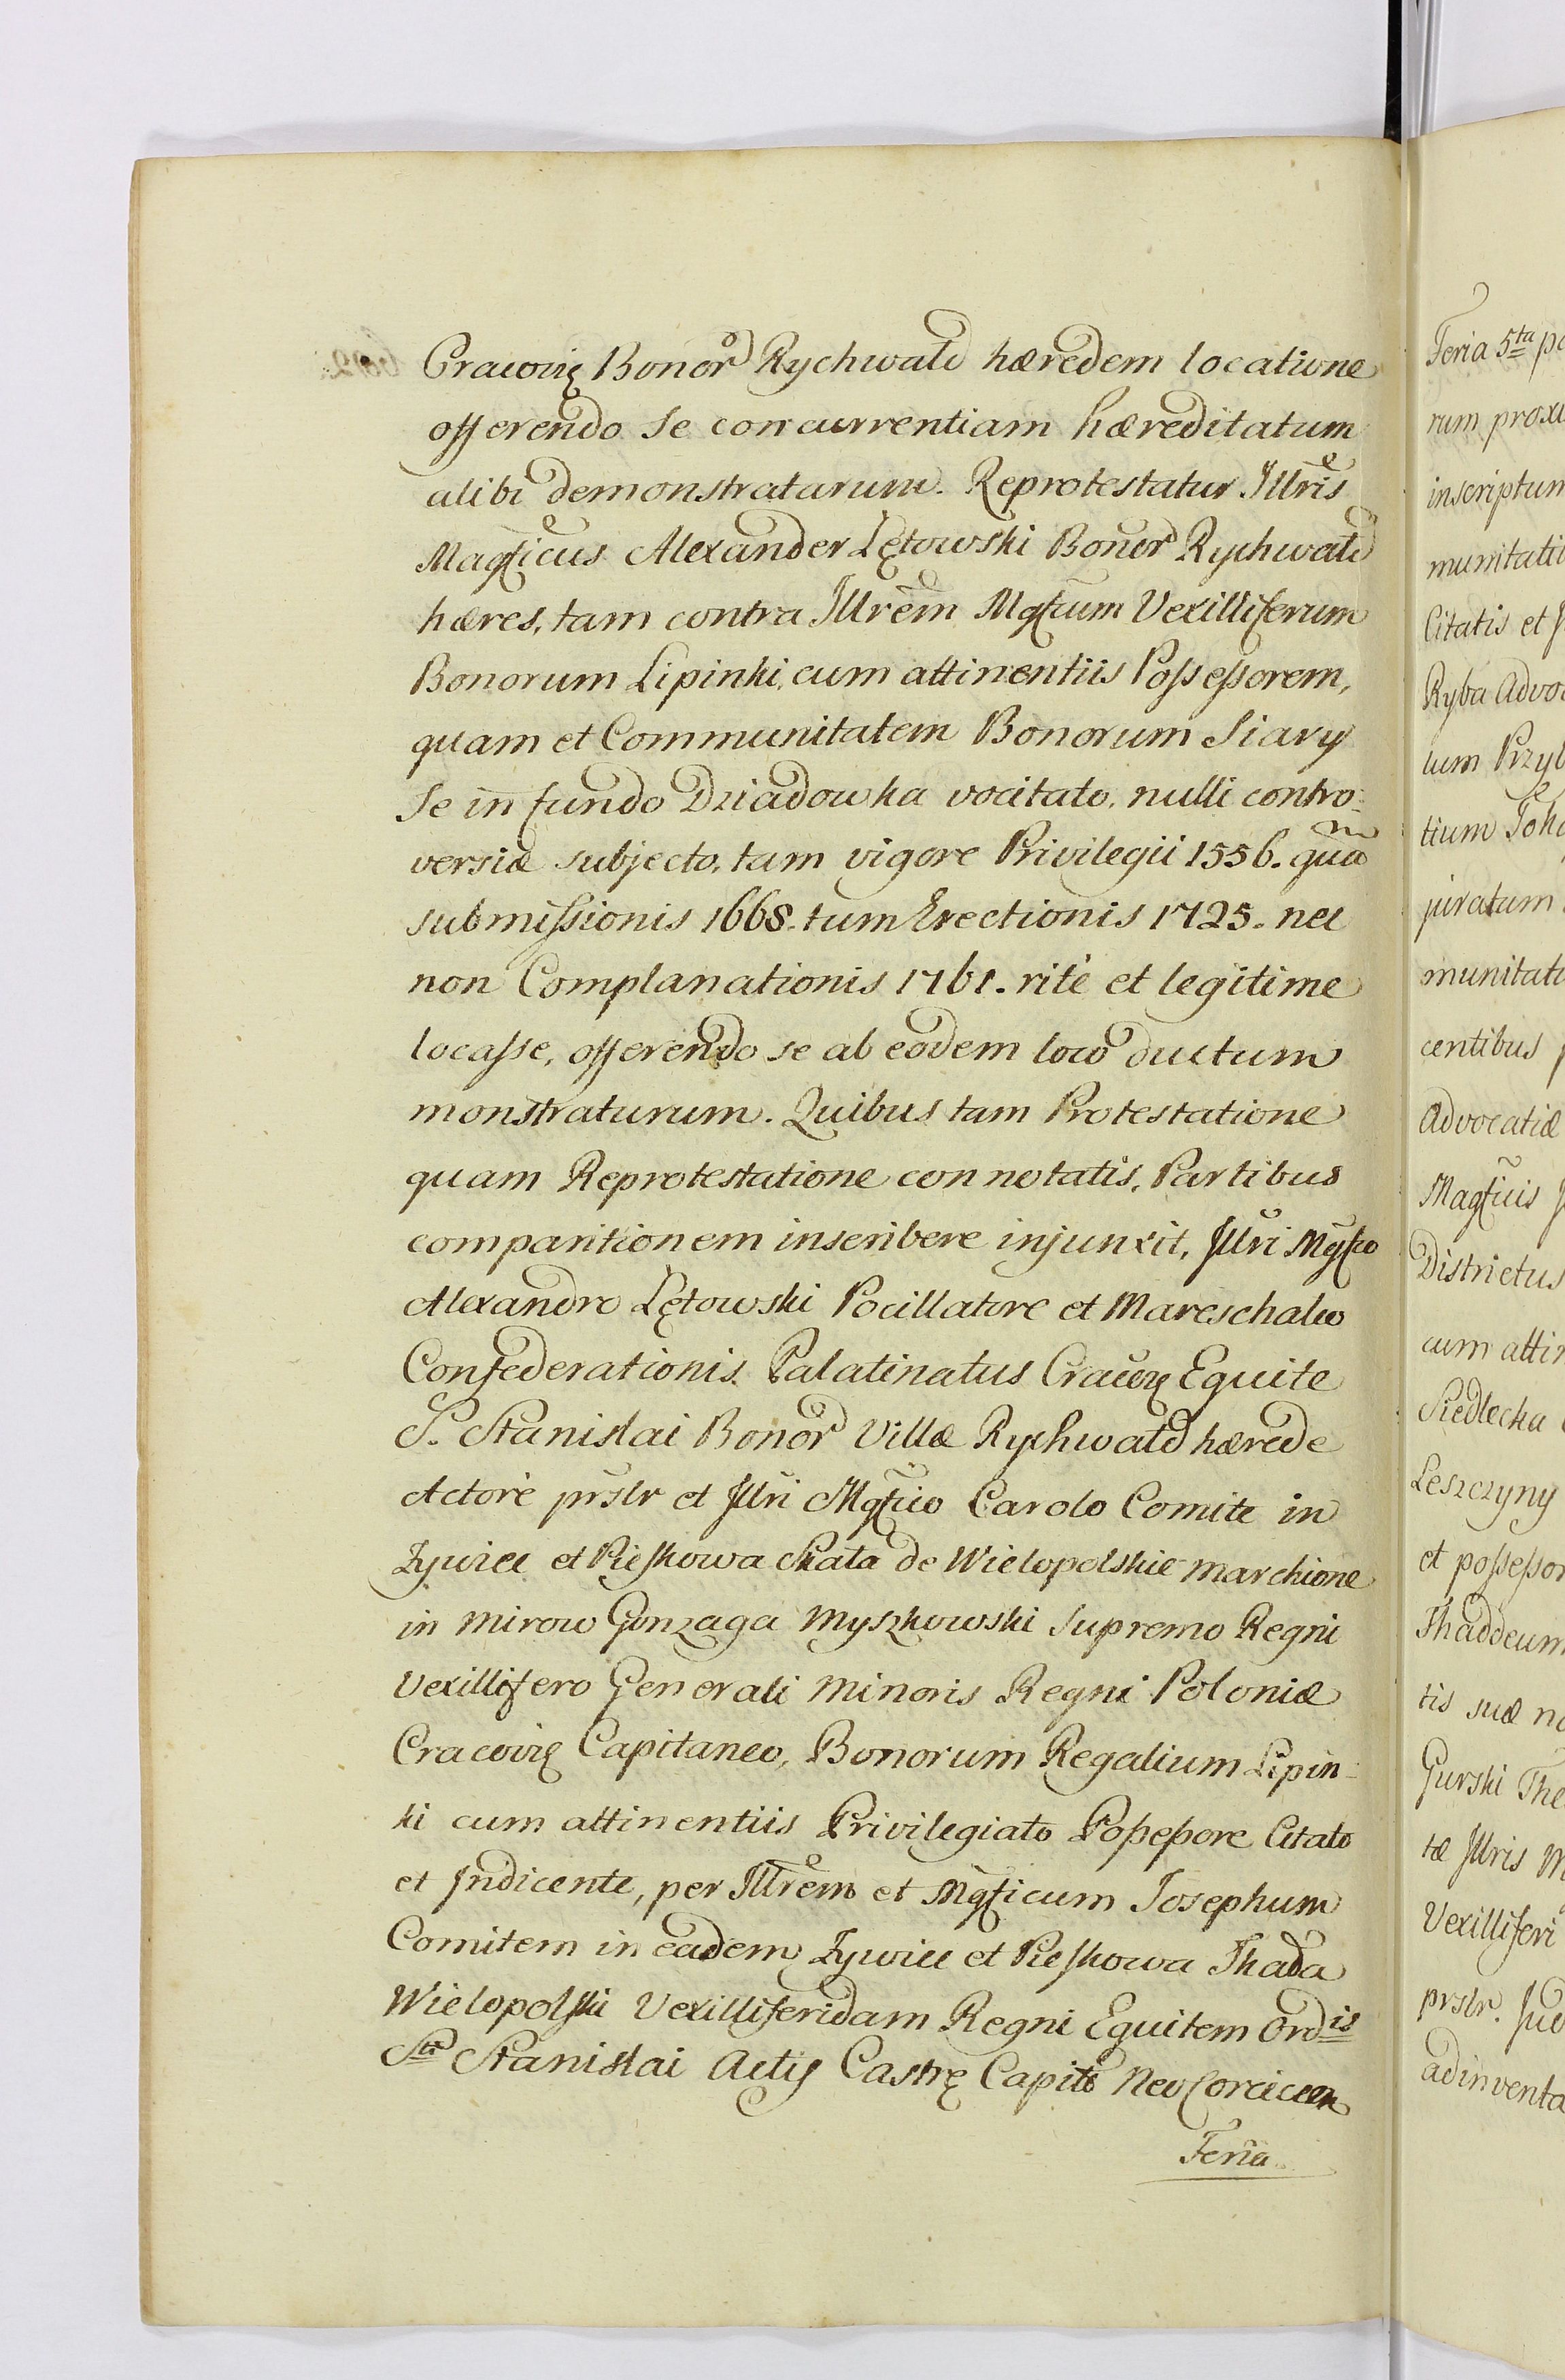 Cracovię Bonor Rychwald hæredem locatione
offerendo se concurrentiam hæreditatum
alibi demonstratarum. Reprotestatur Illris
Magficus Alexander Lętowski Bonor Rychwald
hæres, tam contra Illrem Mgfcum Vexilliferum
Bonorum Lipinki, cum attinentiis Possessorem,
quam et Communitatem Bonorum Siary
Se in fundo Dziadowka vocitato, nulli contro-
versiæ subjecto, tam vigore Privilegii 1556. quam
submissionis 1668. tum Erectionis 1725. nec
non Complanationis 1761. ritè et legitime
locasse, offerendo se ab eodem loco ductum
monstraturum. Quibus tam Protestatione
quam Reprotestatione connotatis, Partibus
comparitionem inscribere injunxit, Illri Mgfco
Alexandro Lętowski Pocillatore et Mareschalco
Confederationis Palatinatus Cracovię Equite
S. Stanislai Bonor Villæ Rychwald hærede
Actorè prslr et Illri Mgfico Carolo Comite in
Zywiec et Pieskowa Skała de Wielopolskie Marchione
in Mirow Gonzaga Myszkowski Supremo Regni
Vexillifero Generali Minoris Regni Poloniæ
Cracovię Capitaneo, Bonorum Regalium Lipin-
ki cum attinentiis Privilegiato Possessore Citato
et Indicente, per Illrem et Mgficum Josephum
Comitem in eadem Zywiec et Pieskowa Skała
Wielopolski Vexilliferidam Regni Equitem Ordis
Sti Stanislai Actis Castrę Capit Neo Corcicen
Feria
Feria 5ta
rum
inscriptum
Citatis et
Ryba
tium
juratum
centibus
Advocatiæ
Magficis
Districtus
cum
Siedlecka
Leszczyny
et
Thaddeum
tis suæ
Gurski
tæ Illris
Vexilliferi
prslr.